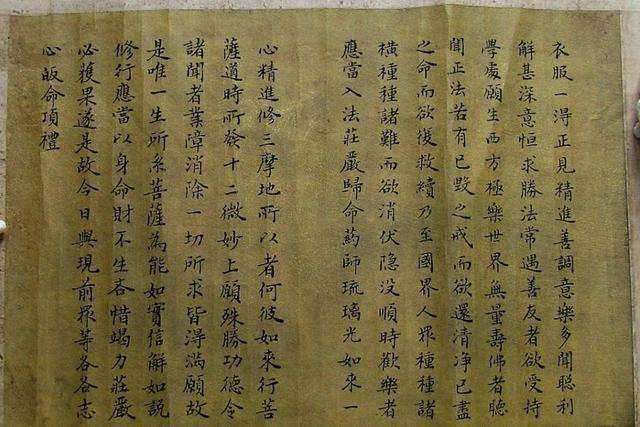 衣服一得正見精進善調意樂多聞聡利
解甚深意恒求勝法常遇善友者欲受持
學處願生西方極樂世界無量壽佛者聴
聞正法若有已毀之戒而欲還清净已盡
之命而欲復救續乃至國界人界種種諸
横種種諸難而欲消伏隐没順時歡樂者
應當入法莊嚴歸命藥師琉璃光如來一
心精進修三摩地所以者何彼如來行菩
薩道時所發十二微妙上願殊勝功德令
諸聞者業障消除一切所求皆得満願故
是唯一生所系菩薩為能如實信解如説
修行應當以身命財不生吝惜竭力莊嚴
必獲果遂是故今日與現前衆等各各志
心皈命頂禮